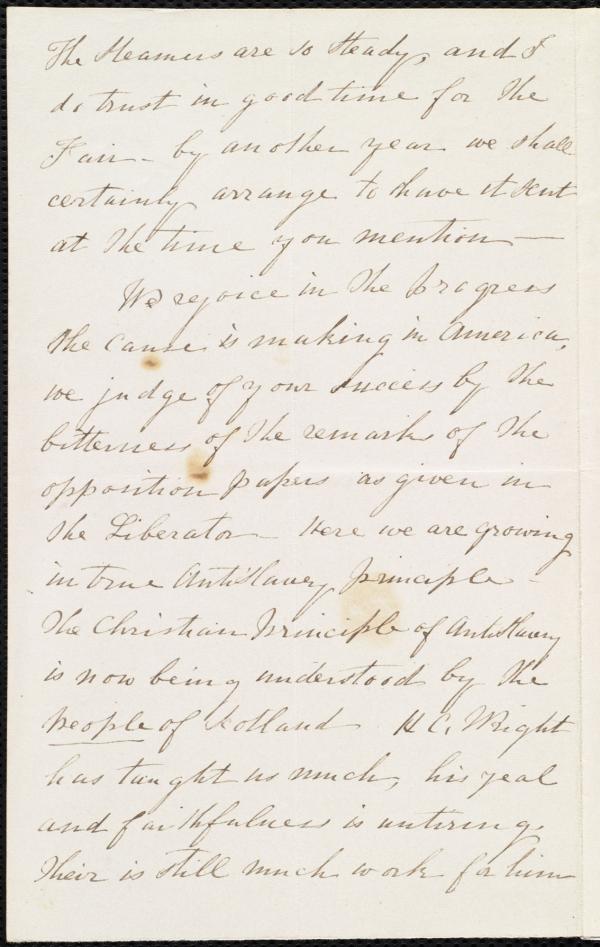 The Steamers are so steady, and I
do trust in good time for the
Fair - by another year we shall
certainly arrange to have it sent
at the time you mention —
We rejoice in the progress
the cause is making in America,
we judge of your success by the
bitterness of the remarks of the
opposition papers as given in
the Liberator - Here we are growing
in true AntiSlavery principle -
The Christian Principle of AntiSlavery
is now being understood by the
people of Scotland H C. Wright
has taught us much, his zeal
and faithfulness is untiring,
Their is still much work for him